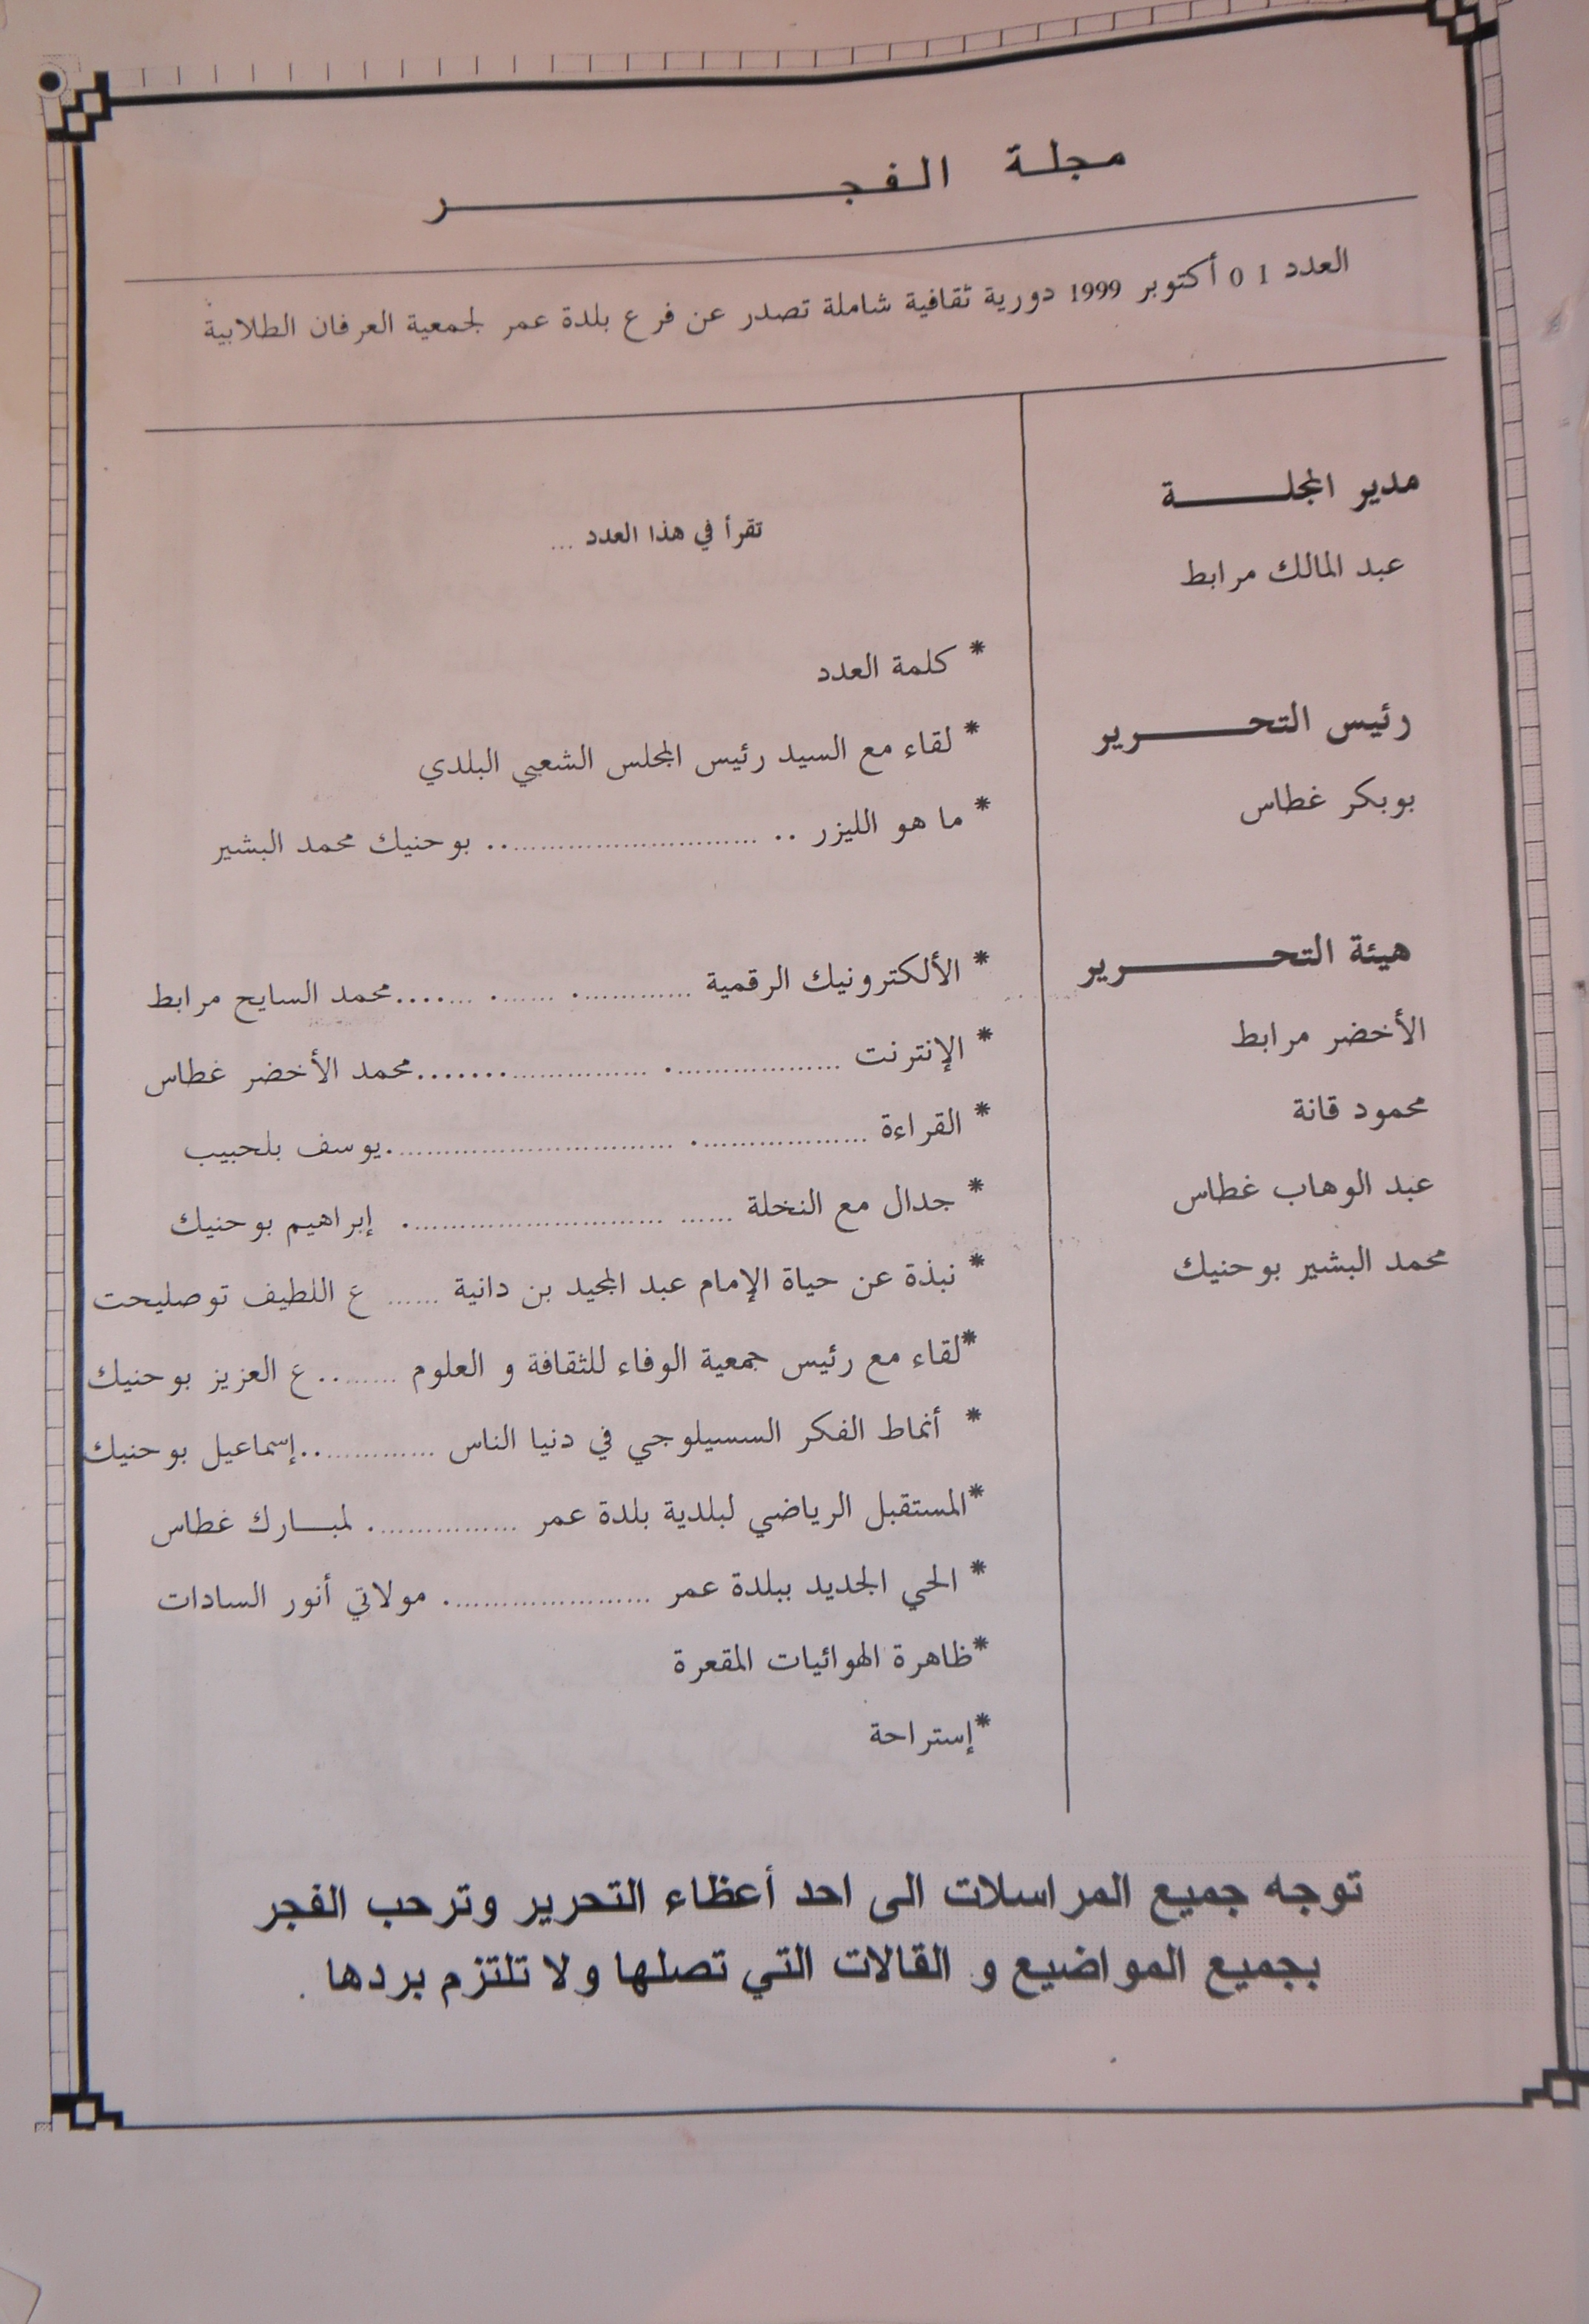 مجلة الفجر
العدد 01 أكتوبر 1999 دورية ثقافية شاملة تصدر عن فرع بلدة عمر لجمعية العرفان الطلابية
مدير المجلة
عبد المالك مرابط
رئيس التحرير
بوبكر غطاس
هيئة التحرير
الأخضر مرابط
محمود قانة
عبد الوهاب غطاس
محمد البشير بوحنيك
تقرأ في هذا العدد ...
* كلمة العدد
* لقاء مع السيد رئيس المجلس الشعبي البلدي
* ما هو الليزر .. ........................... بوحنيك محمد البشير
* الألكترونيك الرقمية ............. ....... .......محمد السايح مرابط
* الإنترنت ................... ......................محمد الأخضر غطاس
* القراءة ................... ...............................يوسف بلحبيب
* جدال مع النخلة ...... ............................ إبراهيم بوحنيك
* نبذة عن حياة الإمام عبد المجيد بن دانية ...... ع اللطيف توصليحت
*لقاء مع رئيس جمعية الوفاء للثقافة و العلوم .........ع العزيز بوحنيك
* أنماط الفكر السسيلوجي في دنيا الناس ..............إسماعيل بوحنيك
*المستقبل الرياضي لبلدية بلدة عمر ................. لمبارك غطاس
* الحي الجديد ببلدة عمر ....................... مولاتي أنور السادات
*ظاهرة الهوائيات المقعرة
*إستراحة
توجه جميع المراسلات الى احد أعظاء التحرير وترحب الفجر
بجميع المواضيع و القالات التي تصلها ولا تلتزم بردها .